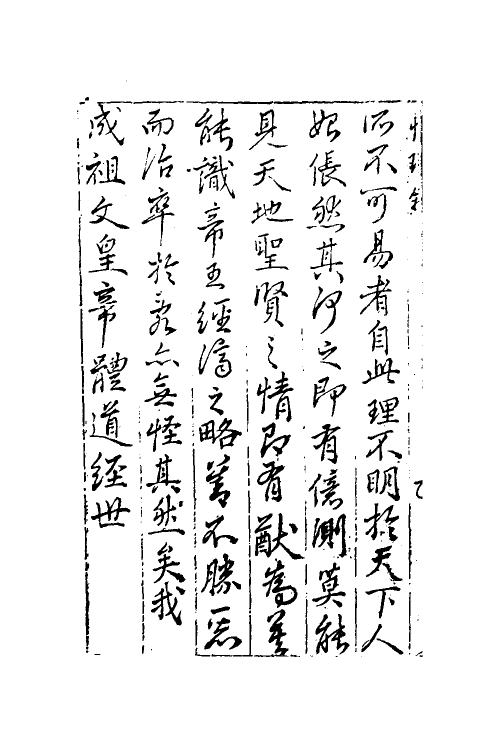 而不可易者自此理不明於天下人
始倀然其何之即有億測莫能
見天地聖賢之情即有猷為莫
能識帝王經濟之略善不勝惡
而治卒於亂亦無怪其然矣我
成祖文皇帝體道經世